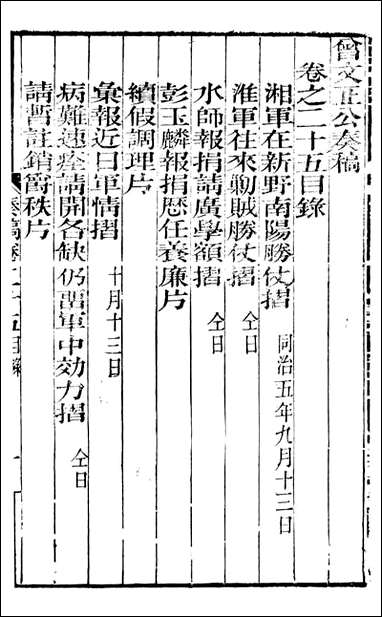 曾文正公奏稿
卷之二十五目錄
湘軍在新野南陽勝仗摺 同治五年九月十三日
淮軍往來勦賊勝仗摺 仝日
水師報捐請廣學額摺 仝日
彭玉麟報捐歷任養廉片
續假調理片
彙報近日軍情摺 十月十三日
病難速痊請開各缺仍留軍中効力摺 仝日
請暫註銷爵秩片
奏稿卷二十五目錄 一